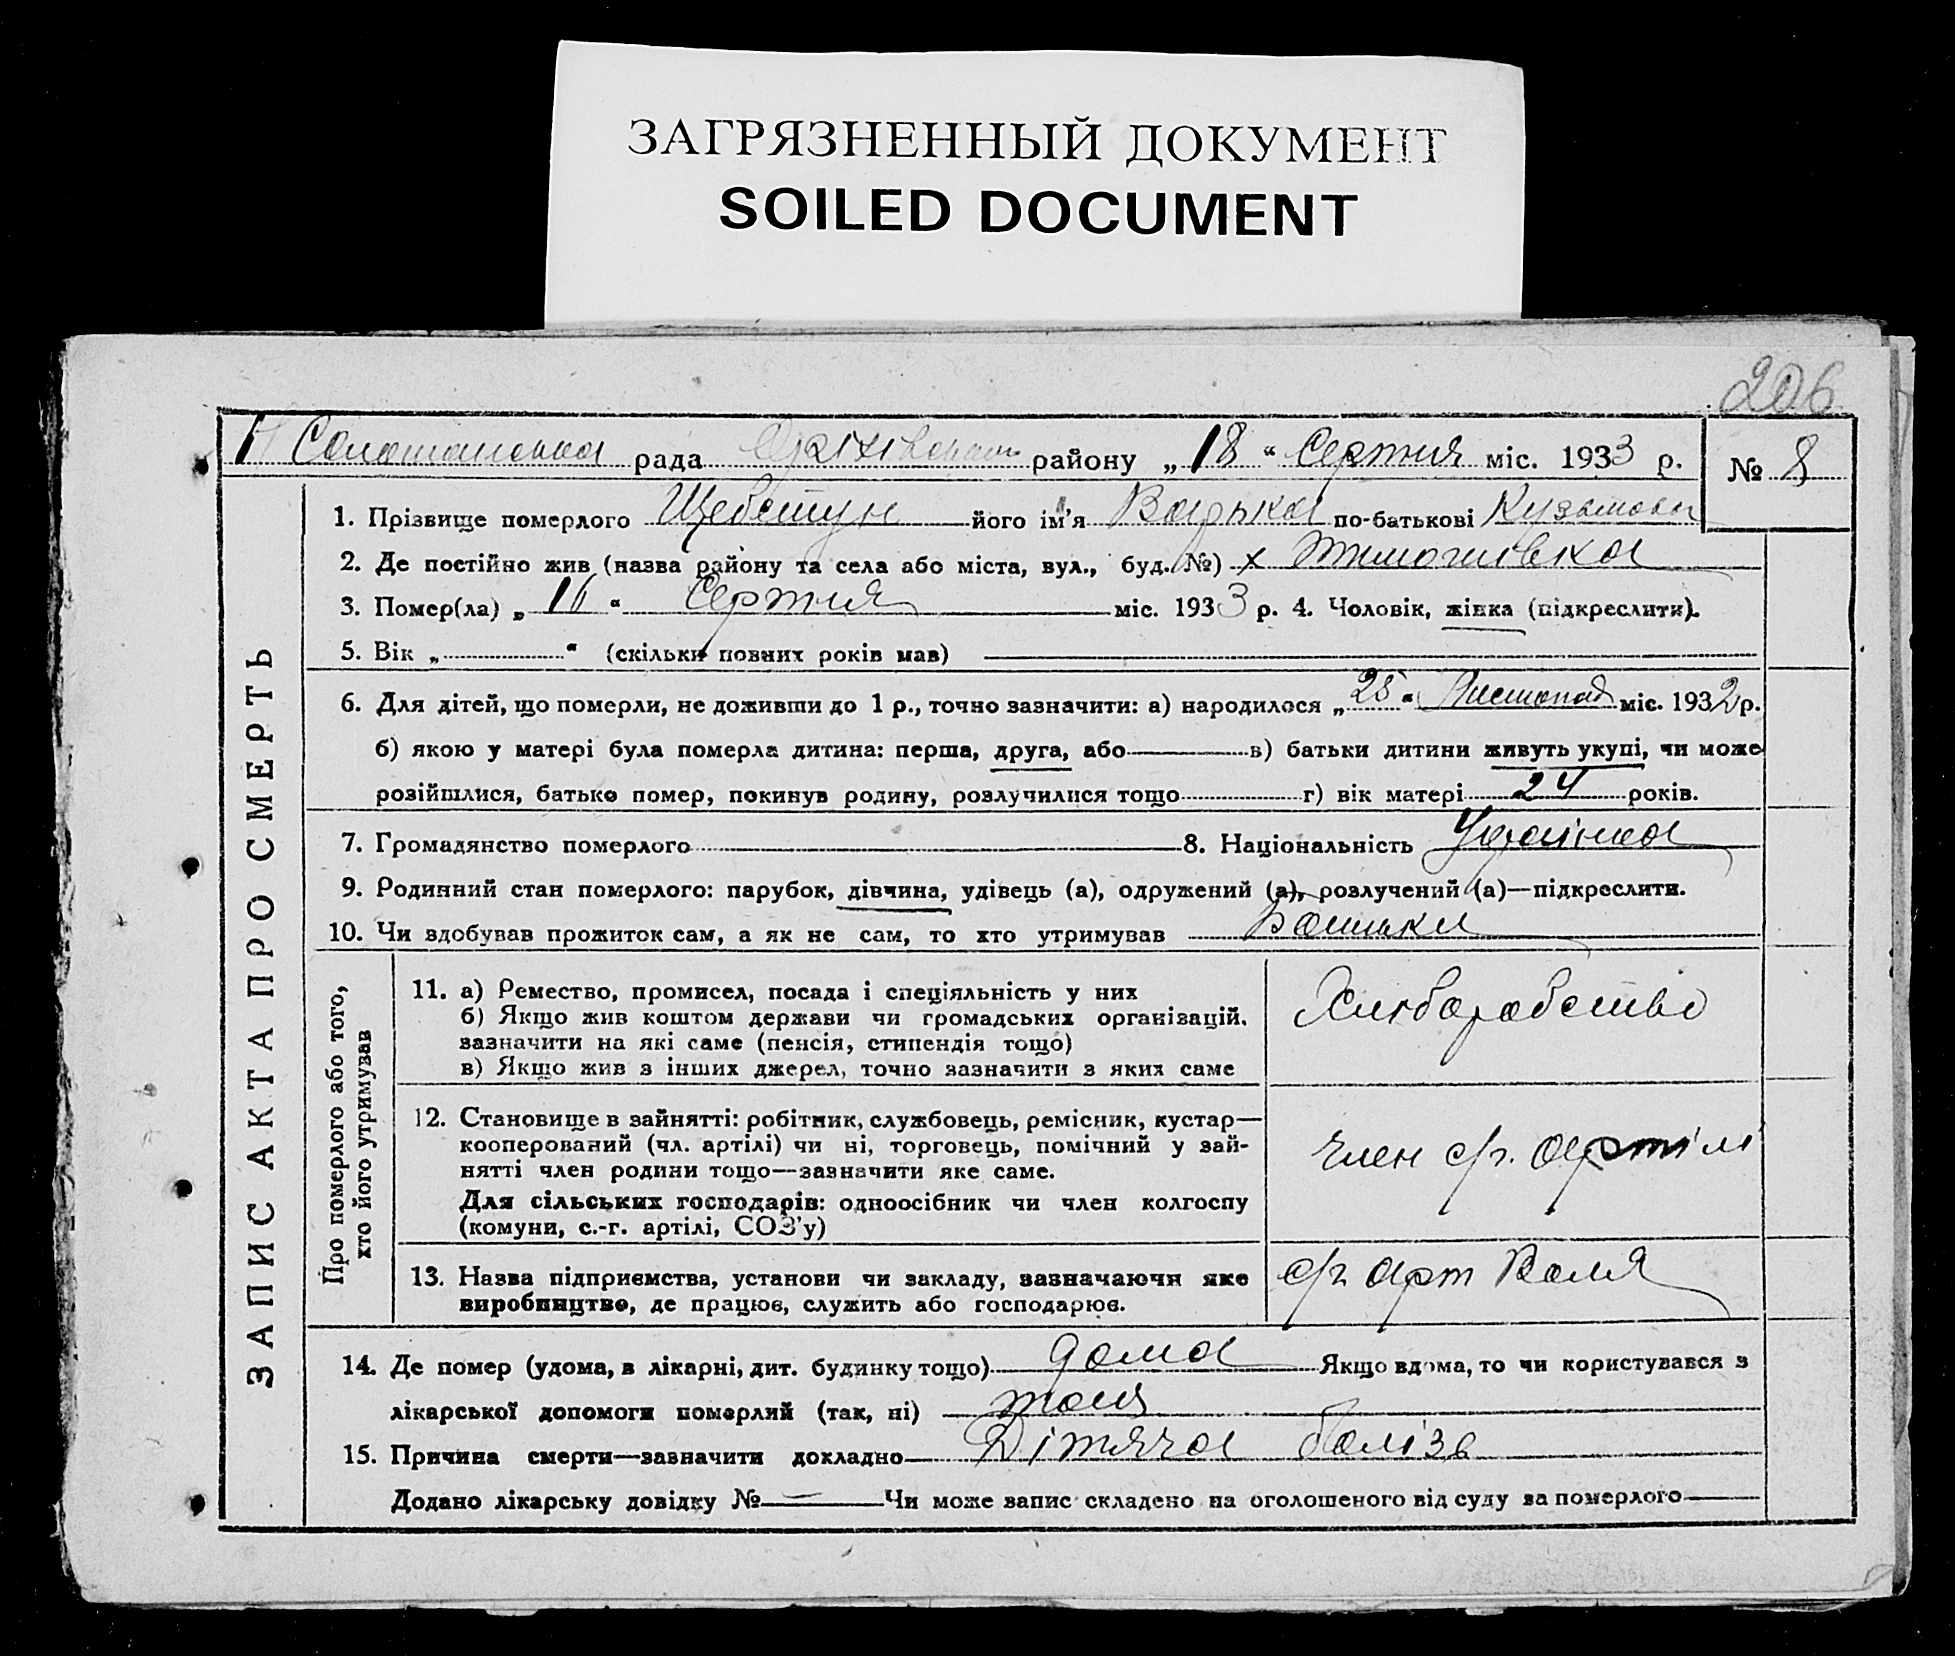 ЗАГРЯЗНЕННЫЙ ДОКУМЕНТ
SOILED DOCUMENT
206
рада району „18“ Серпня міс. 1933 р. № 8
ЗАПИС АКТА ПРО СМЕРТЬ
1. Прізвище померлого Щебетун його ім'я Варька по-батькові Кузьмовн
2. Де постійно жив (назва району та села або міста, вул., буд. №) х Тимошівка
3. Помер(ла) „16“ Серпня міс. 1933 р. 4. Чоловік, жінка (підкреслити).
5. Вік „ “ (скільки повних років мав)
6. Для дітей, що померли, не доживши до 1 р., точно зазначити: а) народилося „25“ Листопад міс. 1932 р.
б) якою у матері була померла дитина: перша, друга, або в) батьки дитини живуть укупі, чи може
розійшлися, батько помер, покинув родину, розлучилися тощо г) вік матері 24 років.
7. Громадянство померлого 8. Національність Українка
9. Родинний стан померлого: парубок, дівчина, удівець (а), одружений (а), розлучений (а)—підкреслити.
10. Чи здобував прожиток сам, а як не сам, то хто утримував Батьки
Про померлого або того,
хто його утримував
11. а) Ремество, промисел, посада і спеціяльність у них
б) Якщо жив коштом держави чи громадських організацій,
зазначити на які саме (пенсія, стипендія тощо)
в) Якщо жив з інших джерел, точно зазначити з яких саме
Хліборобство
12. Становище в зайнятті: робітник, службовець, ремісник, кустар—
кооперований (чл. артілі) чи ні, торговець, помічний у зай-
нятті член родини тощо—зазначити яке саме.
Для сільських господарів: одноосібник чи член колгоспу
(комуни, с.-г. артілі, СОЗ'у)
член с/г. артілі
13. Назва підприємства, установи чи закладу, зазначаючи яке
виробництво, де працює, служить або господарює.
с/г арт Воля
14. Де помер (удома, в лікарні, дит. будинку тощо) дома Якщо вдома, то чи користувався з
лікарської допомоги померлий (так, ні)
15. Причина смерти—зазначити докладно Дітяча
Додано лікарську довідку № — Чи може запис складено на оголошеного від суду за померлого